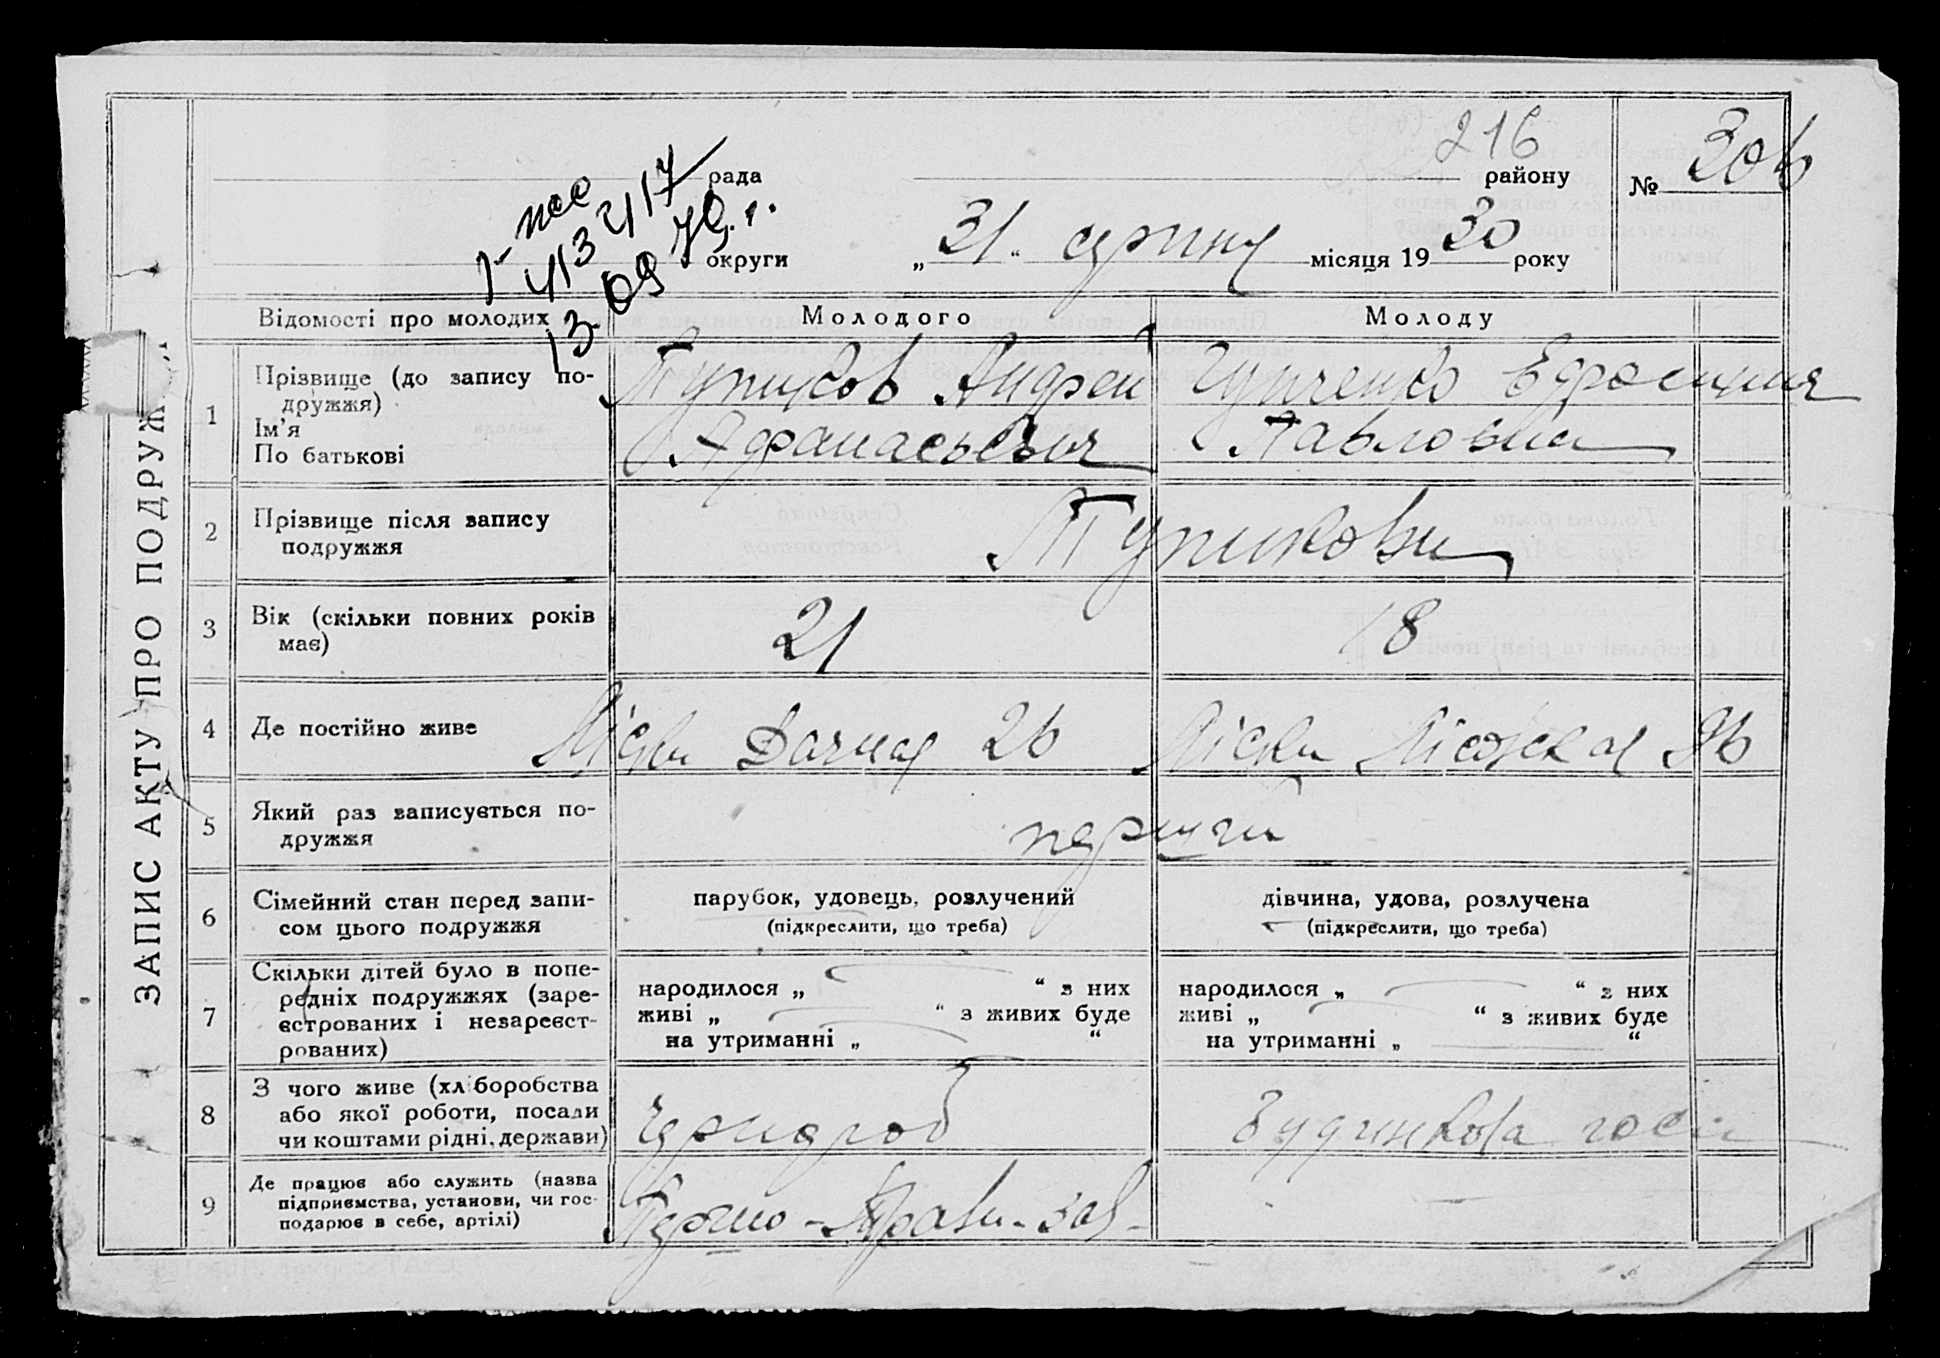 216
рада району № 306
округи „31“ серпня місяця 1930 року
ЗАПИС АКТУ ПРО ПОДРУЖ
Відомості про молодих Молодого Молоду
1 Прізвище (до запису по-
дружжя)
Ім’я
По батькові
Андрей
Афанасьевич
Павловна
2 Прізвище після запису
подружжя
3 Вік (скільки повних років
має)
21 18
4 Де постійно живе
Дачная 26
5 Який раз записується по-
дружжя
перший
6 Сімейний стан перед запи-
сом цього подружжя
парубок, удовець, розлучений
(підкреслити, що треба)
дівчина, удова, розлучена
(підкреслити, що треба)
7 Скільки дітей було в попе-
редніх подружжях (заре-
єстрованих і незареєст-
рованих)
народилося „ “ з них
живі „ “ з живих буде
на утриманні „ “
народилося „ “ з них
живі „ “ з живих буде
на утриманні „ “
8 З чого живе (хліборобства
або якої роботи, посади
чи коштами рідні, держави)
чернороб
9 Де працює або служить (назва
підприємства, установи, чи гос-
подарює в себе, артілі)